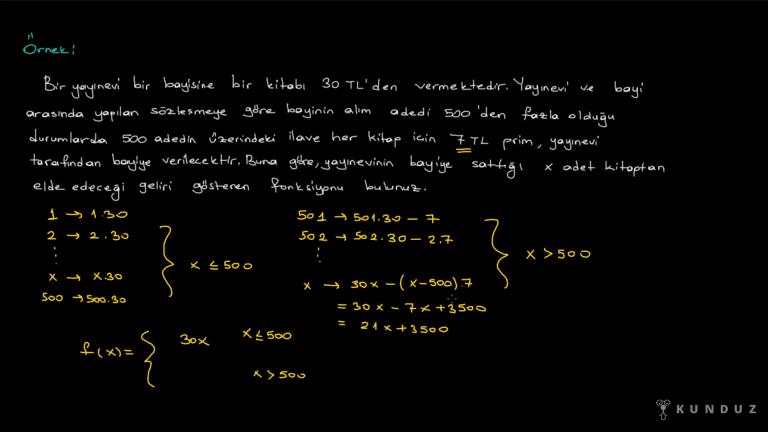 Örnek:
Bir yayınevi bir bayisine bir kitabı 30 TL'den vermektedir. Yayınevi ve bayi
arasında yapılan sözleşmeye göre bayinin alım adedi 500'den fazla olduğu
durumlarda 500 adedin üzerindeki ilave her kitap için 7 TL prim, yayınevi
tarafından bayiye verilecektir. Buna göre, yayınevinin bayiye sattığı x adet kitaptan
elde edeceği geliri gösteren fonksiyonu bulunuz.
1 → 1.30
2 → 2.30
⋮
x → x.30
500 → 500.30
x ≤ 500
501 → 501.30 - 7
502 → 502.30 - 2.7
⋮
x → 30x - (x-500).7
= 30x - 7x + 3500
= 21x + 3500
x > 500
f(x) = {
30x x ≤ 500
x > 500
KUNDUZ